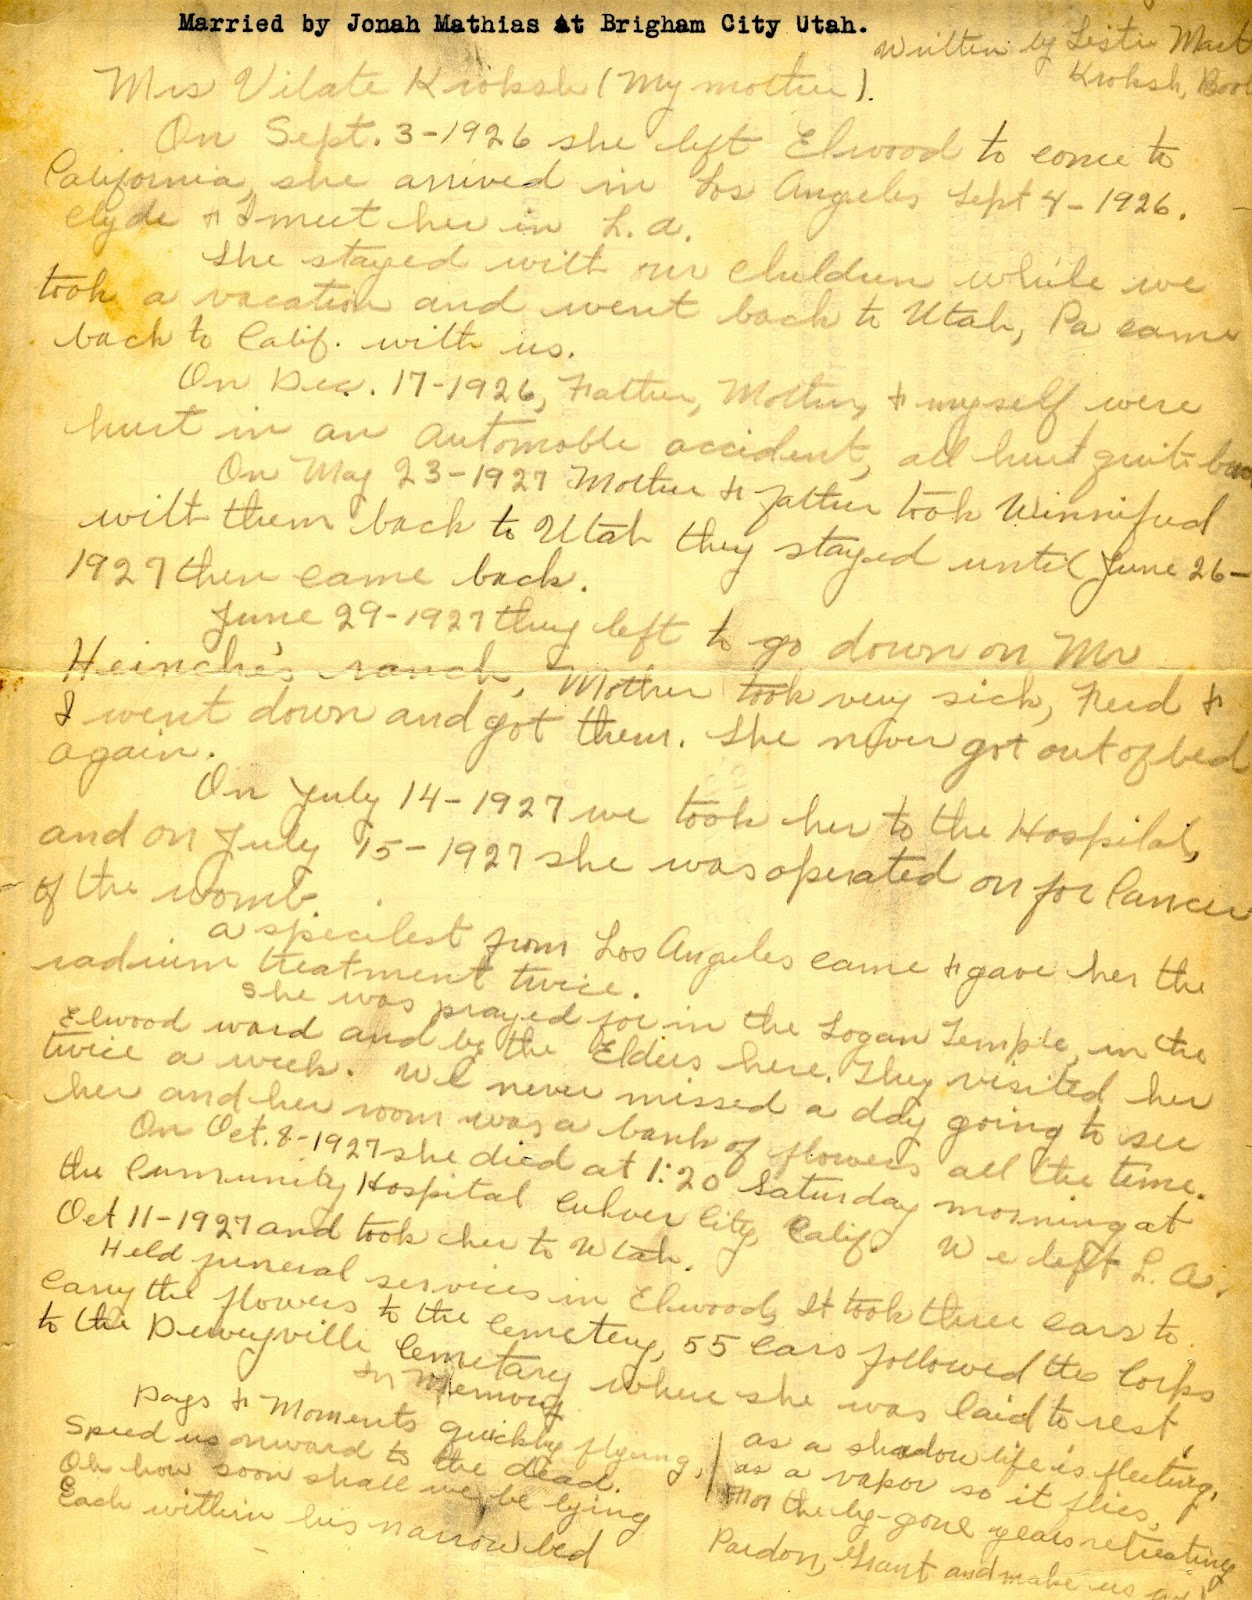 Married by Jonah Mathias At Brigham City Utah.
Written by Mart
Kroksh,
Mrs Vilate Kroksh (My mother).
On Sept. 3-1926 she left Elwood to come to
California, she arrived in Los Angeles Sept 4-1926.
Clyde & I meet her in L.A.
She stayed with our children while we
took a vacation and went back to Utah, Pa came
back to Calif. with us.
On Dec. 17-1926, Father, Mother, & myself were
hurt in an automoble accident, all hurt quite
On May 23-1927 Mother & father took Winnifred
with them back to Utah they stayed until June 26-
1927 then came back.
June 29-1927 they left to go down on Mr
ranch, Mother took very sick, &
I went down and got them. She never got out of bed
again.
On July 14-1927 we took her to the Hospital,
and on July 15-1927 she was operated on for Cancer
of the womb.
a specilest from Los Angeles came & gave her the
radium treatment twice.
She was prayed for in the Logan Temple, in the
Elwood ward and by the Elders here. They visited her
twice a week. We never missed a day going to see
her and her room was a bank of flowers all the time.
On Oct. 8-1927 she died at 1:20 Saturday morning at
the Cummunity Hospital Culver City, Calif. We left L.A.
Oct 11-1927 and took her to Utah.
Held funeral services in Elwood, It took three cars to
carry the flowers to the cemetery, 55 cars followed the Corps
to the Deweyville Cemetary where she was laid to rest.
In Memory
Days & Moments quickly flying,
Speed us onward to the dead.
Oh how soon shall we be lying
Each within his narrow bed
as a shadow life is fleeting,
as a vapor so it flies,
the by-gone years retreating
Pardon, Grant and make us